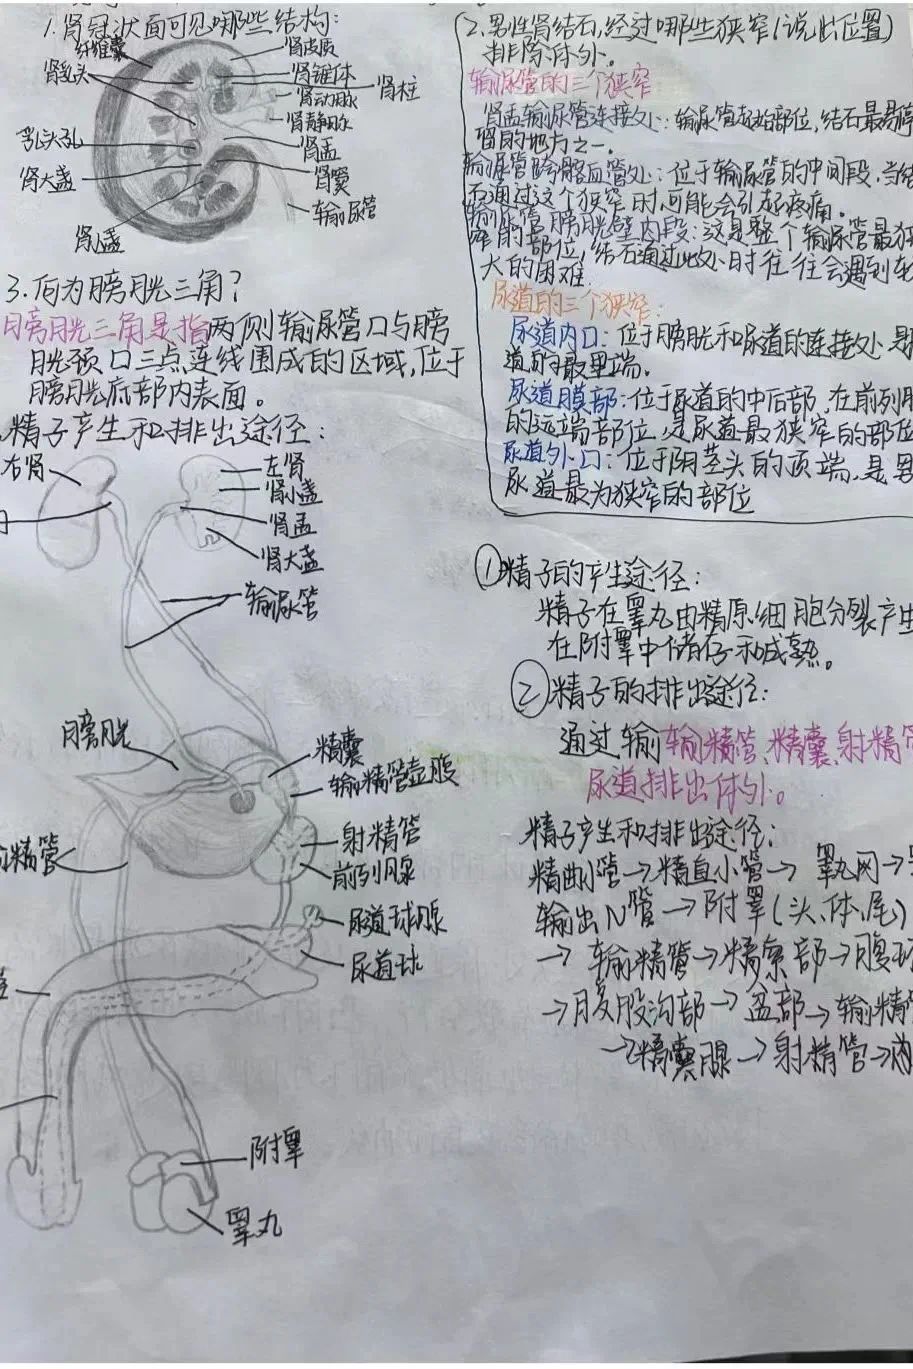 1.肾冠状面可见哪些结构:
纤维囊
肾乳头
乳头孔
肾大盏
肾小盏
肾皮质
肾锥体
肾柱
肾动脉
肾静脉
肾盂
肾窦
输尿管
2.男性肾结石,经过哪些狭窄(说出位置)
排除体外。
输尿管的三个狭窄
肾盂输尿管连接处:输尿管起始部位,结石最易停
留的地方之一。
输尿管跨髂血管处:位于输尿管的中间段,当结
石通过这个狭窄时,可能会引起疼痛。
输尿管膀胱壁内段:这是整个输尿管最狭
窄的部位,结石通过此处时往往会遇到较
大的困难
尿道的三个狭窄:
尿道内口:位于膀胱和尿道的连接处是
道的最里端。
尿道膜部:位于尿道的中后部,在前列腺
的远端部位,是尿道最狭窄的部位
尿道外口:位于阴茎头的顶端,是男
尿道最为狭窄的部位
3.何为膀胱三角?
膀胱三角是指两侧输尿管口与膀
胱颈口三点连线围成的区域,位于
膀胱底部内表面。
精子产生和排出途径:
右肾
左肾
肾小盏
肾盂
肾大盏
输尿管
膀胱
精囊
输精管壶腹
射精管
前列腺
精管
尿道球腺
尿道球
附睾
睾丸
①精子的产生途径:
精子在睾丸由精原细胞分裂产生
在附睾中储存和成熟。
②精子的排出途径:
通过输输精管、精囊、射精管
尿道排出体外。
精子产生和排出途径:
精曲小管→精直小管→睾丸网→
输出小管→附睾(头、体、尾)
→输精管→精索部→腹环
→腹股沟部→盆部→输精
→精囊腺→射精管→